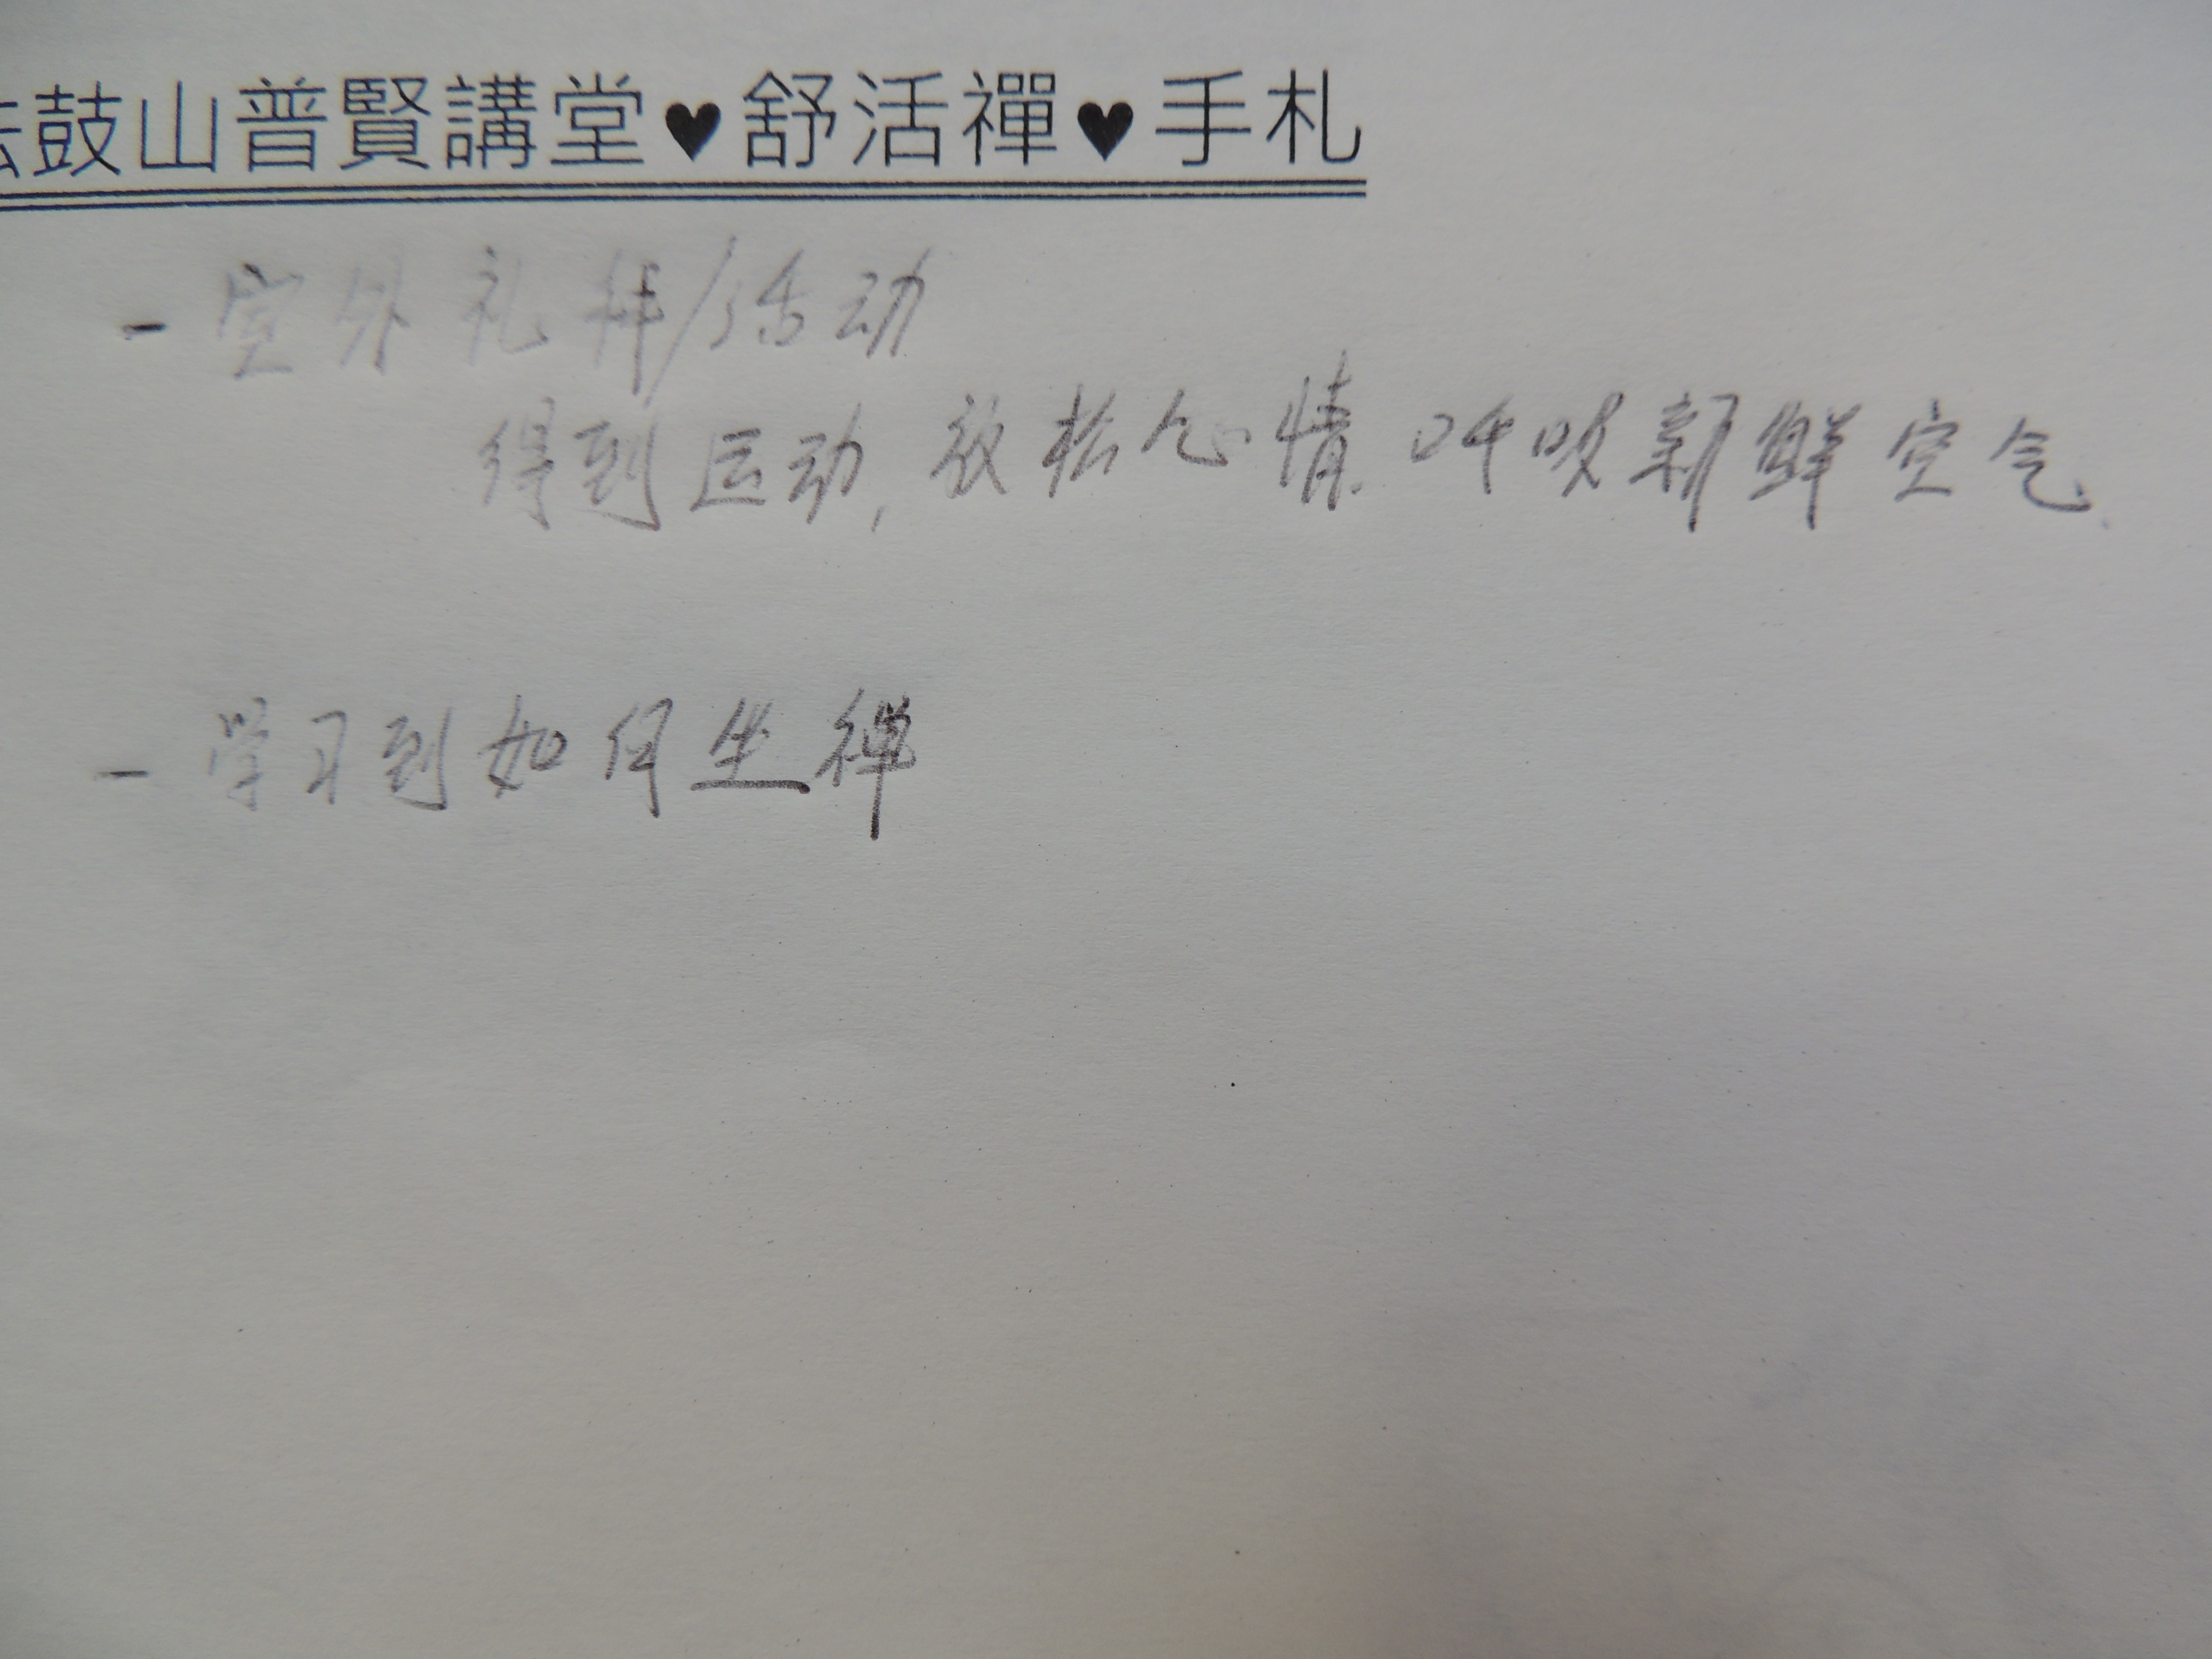 法鼓山普賢講堂♥舒活禪♥手札
- 室外礼拜/活动
得到运动, 放松心情. 呼吸新鲜空气.
- 学习到如何坐禅